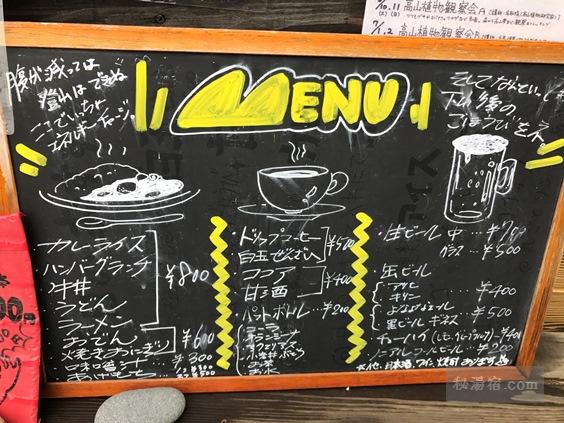 10.11 高山植物観察会A
7/12 高山植物観察会B
腹が減っては
登山はできぬ
ここでいっちょ
エネルギーチャージ
MENU
そしてなんといっても
下山後の
ごほうびをネ。
カレーライス
ハンバーグランチ
牛丼
うどん
ラーメン
¥800
おでん
焼きおにぎり
¥600
味噌汁 … ¥300
ドリップコーヒー
白玉ぜんざい
¥500
ココア
甘酒
¥400
ペットボトル … ¥200
コーラ
オランジーナ
お茶
生ビール 中 … ¥700
グラス … ¥500
缶ビール
アサヒ
キリン
… ¥400
よなよなエール
黒ビール ギネス
… ¥500
チューハイ
ノンアルコールビール … ¥200
※他、日本酒、ワイン、焼酎あります
秘湯宿.com